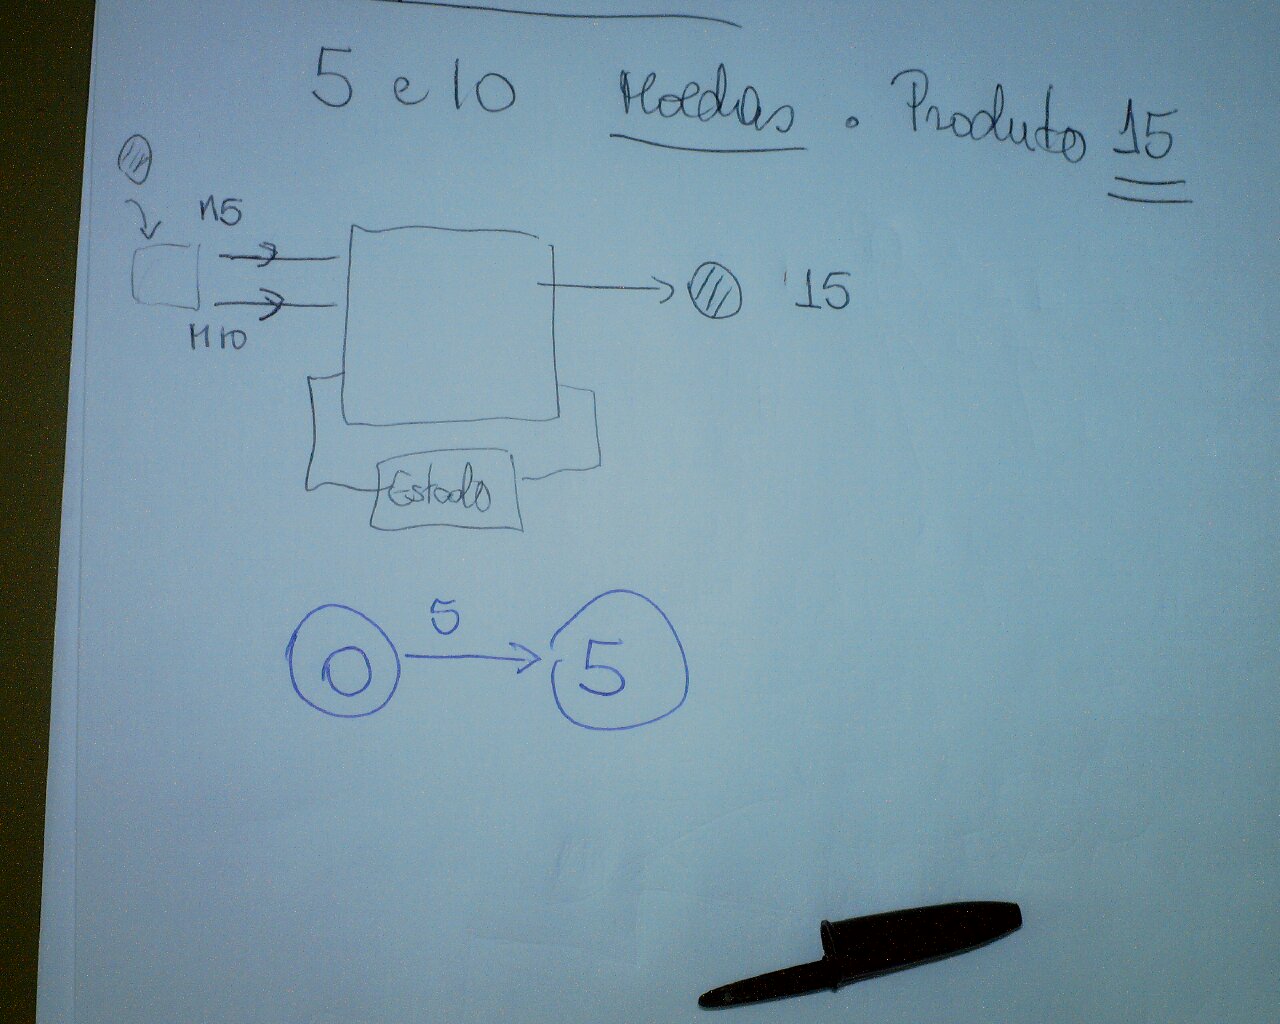 5 e 10 Moedas . Produto 15
M5
M10
15
Estado
5
0 5